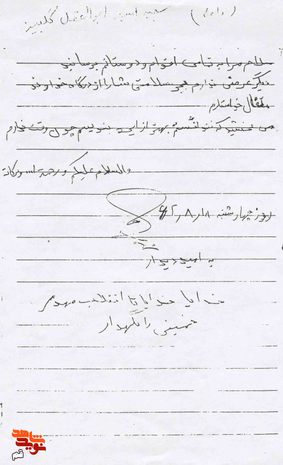 (ادامه) شهید ابوالفضل
سلام مرا به تمامی اقوام و دوستان برسانید
دیگر عرضی ندارم بجز سلامتی شما از درگاه خداوند
متعال خواستارم
می بخشید که نتوانستم بهتر از این بنویسم چون وقت ندارم
والسلام علیکم و رحمت اله و برکاته
روز چهارشنبه ۱۸ر۸ر
به امید دیدار
خدایا خدایا تا انقلاب مهدی
خمینی را نگهدار
نوید شاهد
قم